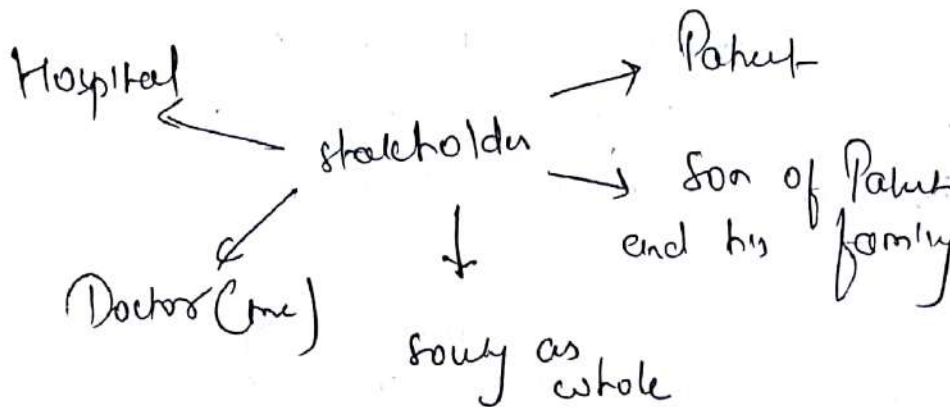 Hospital
Patient
stakeholder
Son of Patient
and his family
Doctor (me)
society as
whole